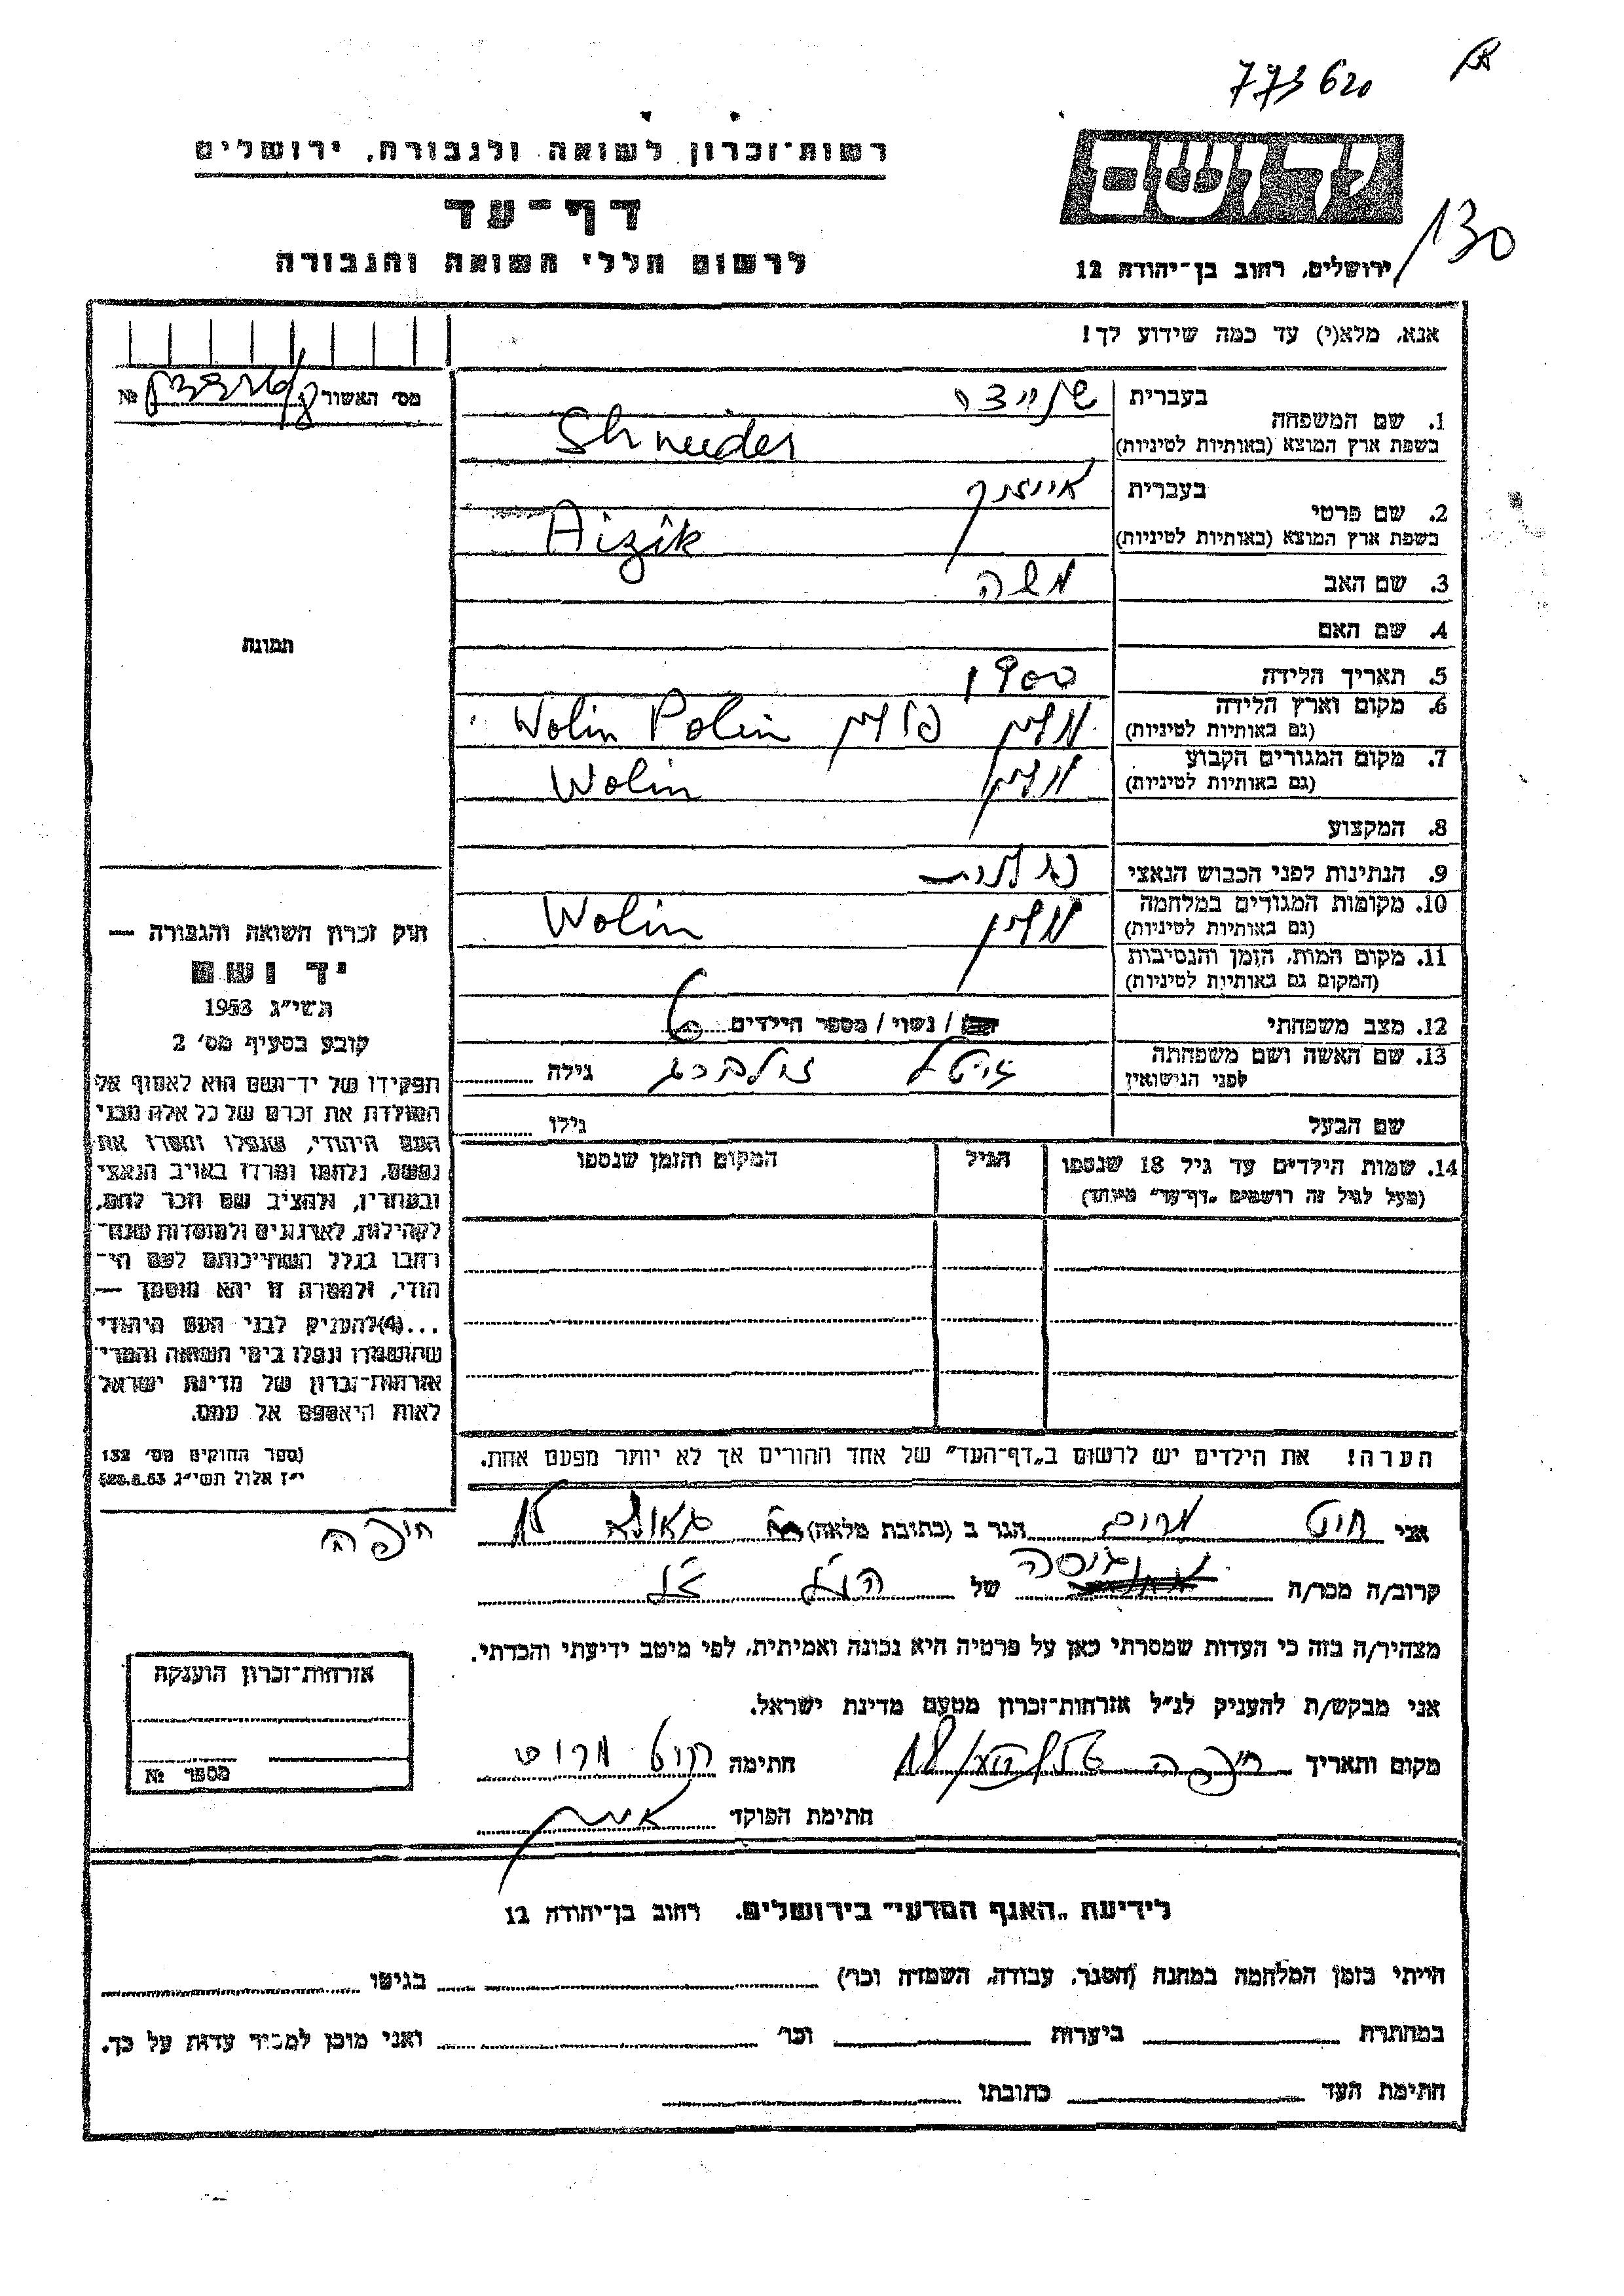 773620
רשות־זכרון לשואה ולגבורה, ירושלים
דף־עד
לרשום חללי השואה והגבורה
יד ושם
130
ירושלים, רחוב בן־יהודה 12
אנא, מלא(י) עד כמה שידוע לך!
מס׳ האשור №
1. שם המשפחה
בעברית שניידר
בשפת ארץ המוצא (באותיות לטיניות) Shneider
2. שם פרטי
בעברית אייזיק
בשפת ארץ המוצא (באותיות לטיניות) Aizik
3. שם האב משה
4. שם האם
5. תאריך הלידה 1900
6. מקום וארץ הלידה (גם באותיות לטיניות) פולין Wolin Polin
7. מקום המגורים הקבוע (גם באותיות לטיניות) Wolin
8. המקצוע
9. הנתינות לפני הכבוש הנאצי פולנית
10. מקומות המגורים במלחמה (גם באותיות לטיניות) Wolin
11. מקום המות, הזמן והנסיבות (המקום גם באותיות לטיניות)
12. מצב משפחתי / נשוי / מספר הילדים 6
13. שם האשה ושם משפחתה לפני הנישואין גילה
שם הבעל גילו
14. שמות הילדים עד גיל 18 שנספו (מעל לגיל זה רושמים „דף־עד״ מיוחד)
הגיל
המקום והזמן שנספו
הערה! את הילדים יש לרשום ב„דף־העד״ של אחד ההורים אך לא יותר מפעם אחת.
תמונה
חוק זכרון השואה והגבורה —
יד ושם
תשי״ג 1953
קובע בסעיף מס׳ 2
תפקידו של יד־ושם הוא לאסוף אל
המולדת את זכרם של כל אלה מבני
העם היהודי, שנפלו ומסרו את
נפשם, נלחמו ומרדו באויב הנאצי
ובעוזריו, ולהציב שם וזכר להם,
לקהילות, לארגונים ולמוסדות שנח־
רבו בגלל השתייכותם לעם הי־
הודי, ולמטרה זו יהא מוסמך —
...(4) להעניק לבני העם היהודי
שהושמדו ונפלו בימי השואה והמרי
אזרחות־זכרון של מדינת ישראל
לאות היאספם אל עמם.
(ספר החוקים מס׳ 132
י״ז אלול תשי״ג 28.8.53)
אני חוט מרים הגר ב (כתובת מלאה) גאולה
חיפה
קרוב/ה מכר/ה גיסה של הנ״ל ז״ל
מצהיר/ה בזה כי העדות שמסרתי כאן על פרטיה היא נכונה ואמיתית, לפי מיטב ידיעתי והכרתי.
אני מבקש/ת להעניק לנ״ל אזרחות־זכרון מטעם מדינת ישראל.
מקום ותאריך חיפה חתימה חוט מרים
חתימת הפוקד
אזרחות־זכרון הוענקה
מספר №
לידיעת „האגף המדעי״ בירושלים, רחוב בן־יהודה 12
הייתי בזמן המלחמה במחנה (הסגר, עבודה, השמדה וכו׳) בגיטו
במחתרת ביערות וכו׳ ואני מוכן למסור עדות על כך.
חתימת העד כתובתו